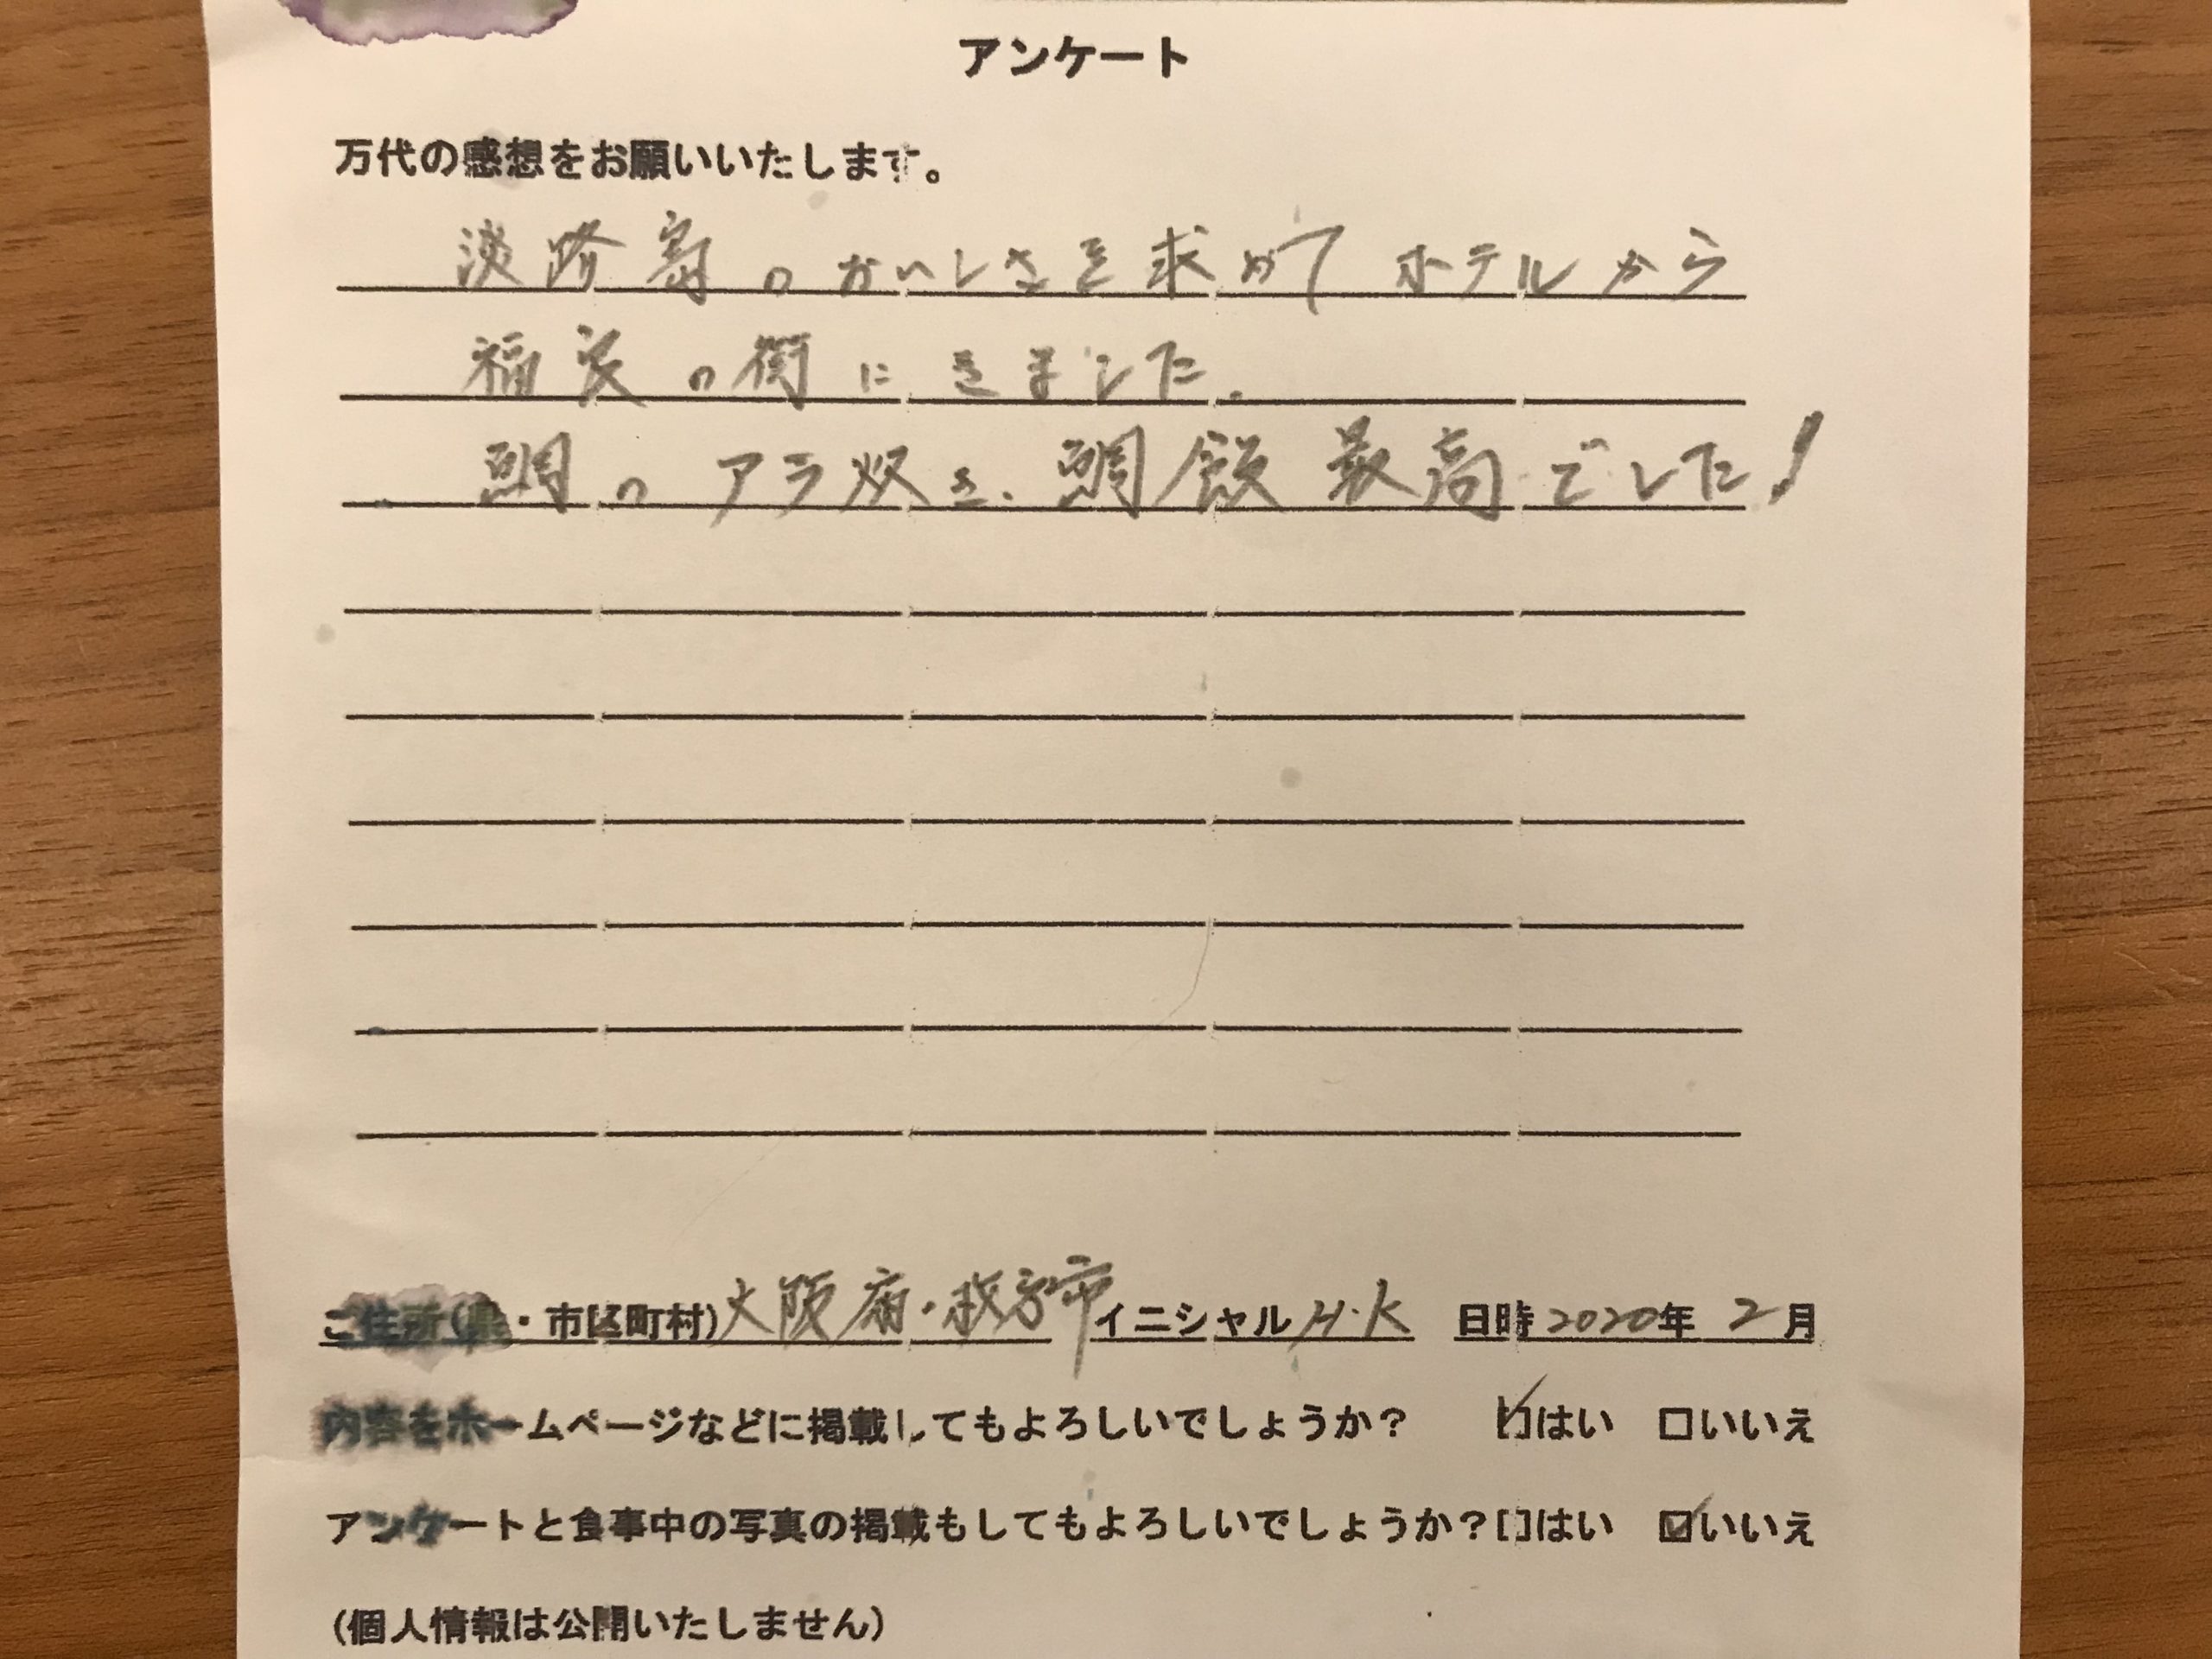 アンケート
万代の感想をお願いいたします。
淡路島のおいしさを求めてホテルから
福良の街にきました。
鯛のアラ炊き、鯛飯最高でした!
ご住所(県・市区町村)大阪府・枚方市 イニシャル H・K 日時 2020年 2月
内容をホームページなどに掲載してもよろしいでしょうか? ☑はい □いいえ
アンケートと食事中の写真の掲載もしてもよろしいでしょうか?□はい ☑いいえ
(個人情報は公開いたしません)